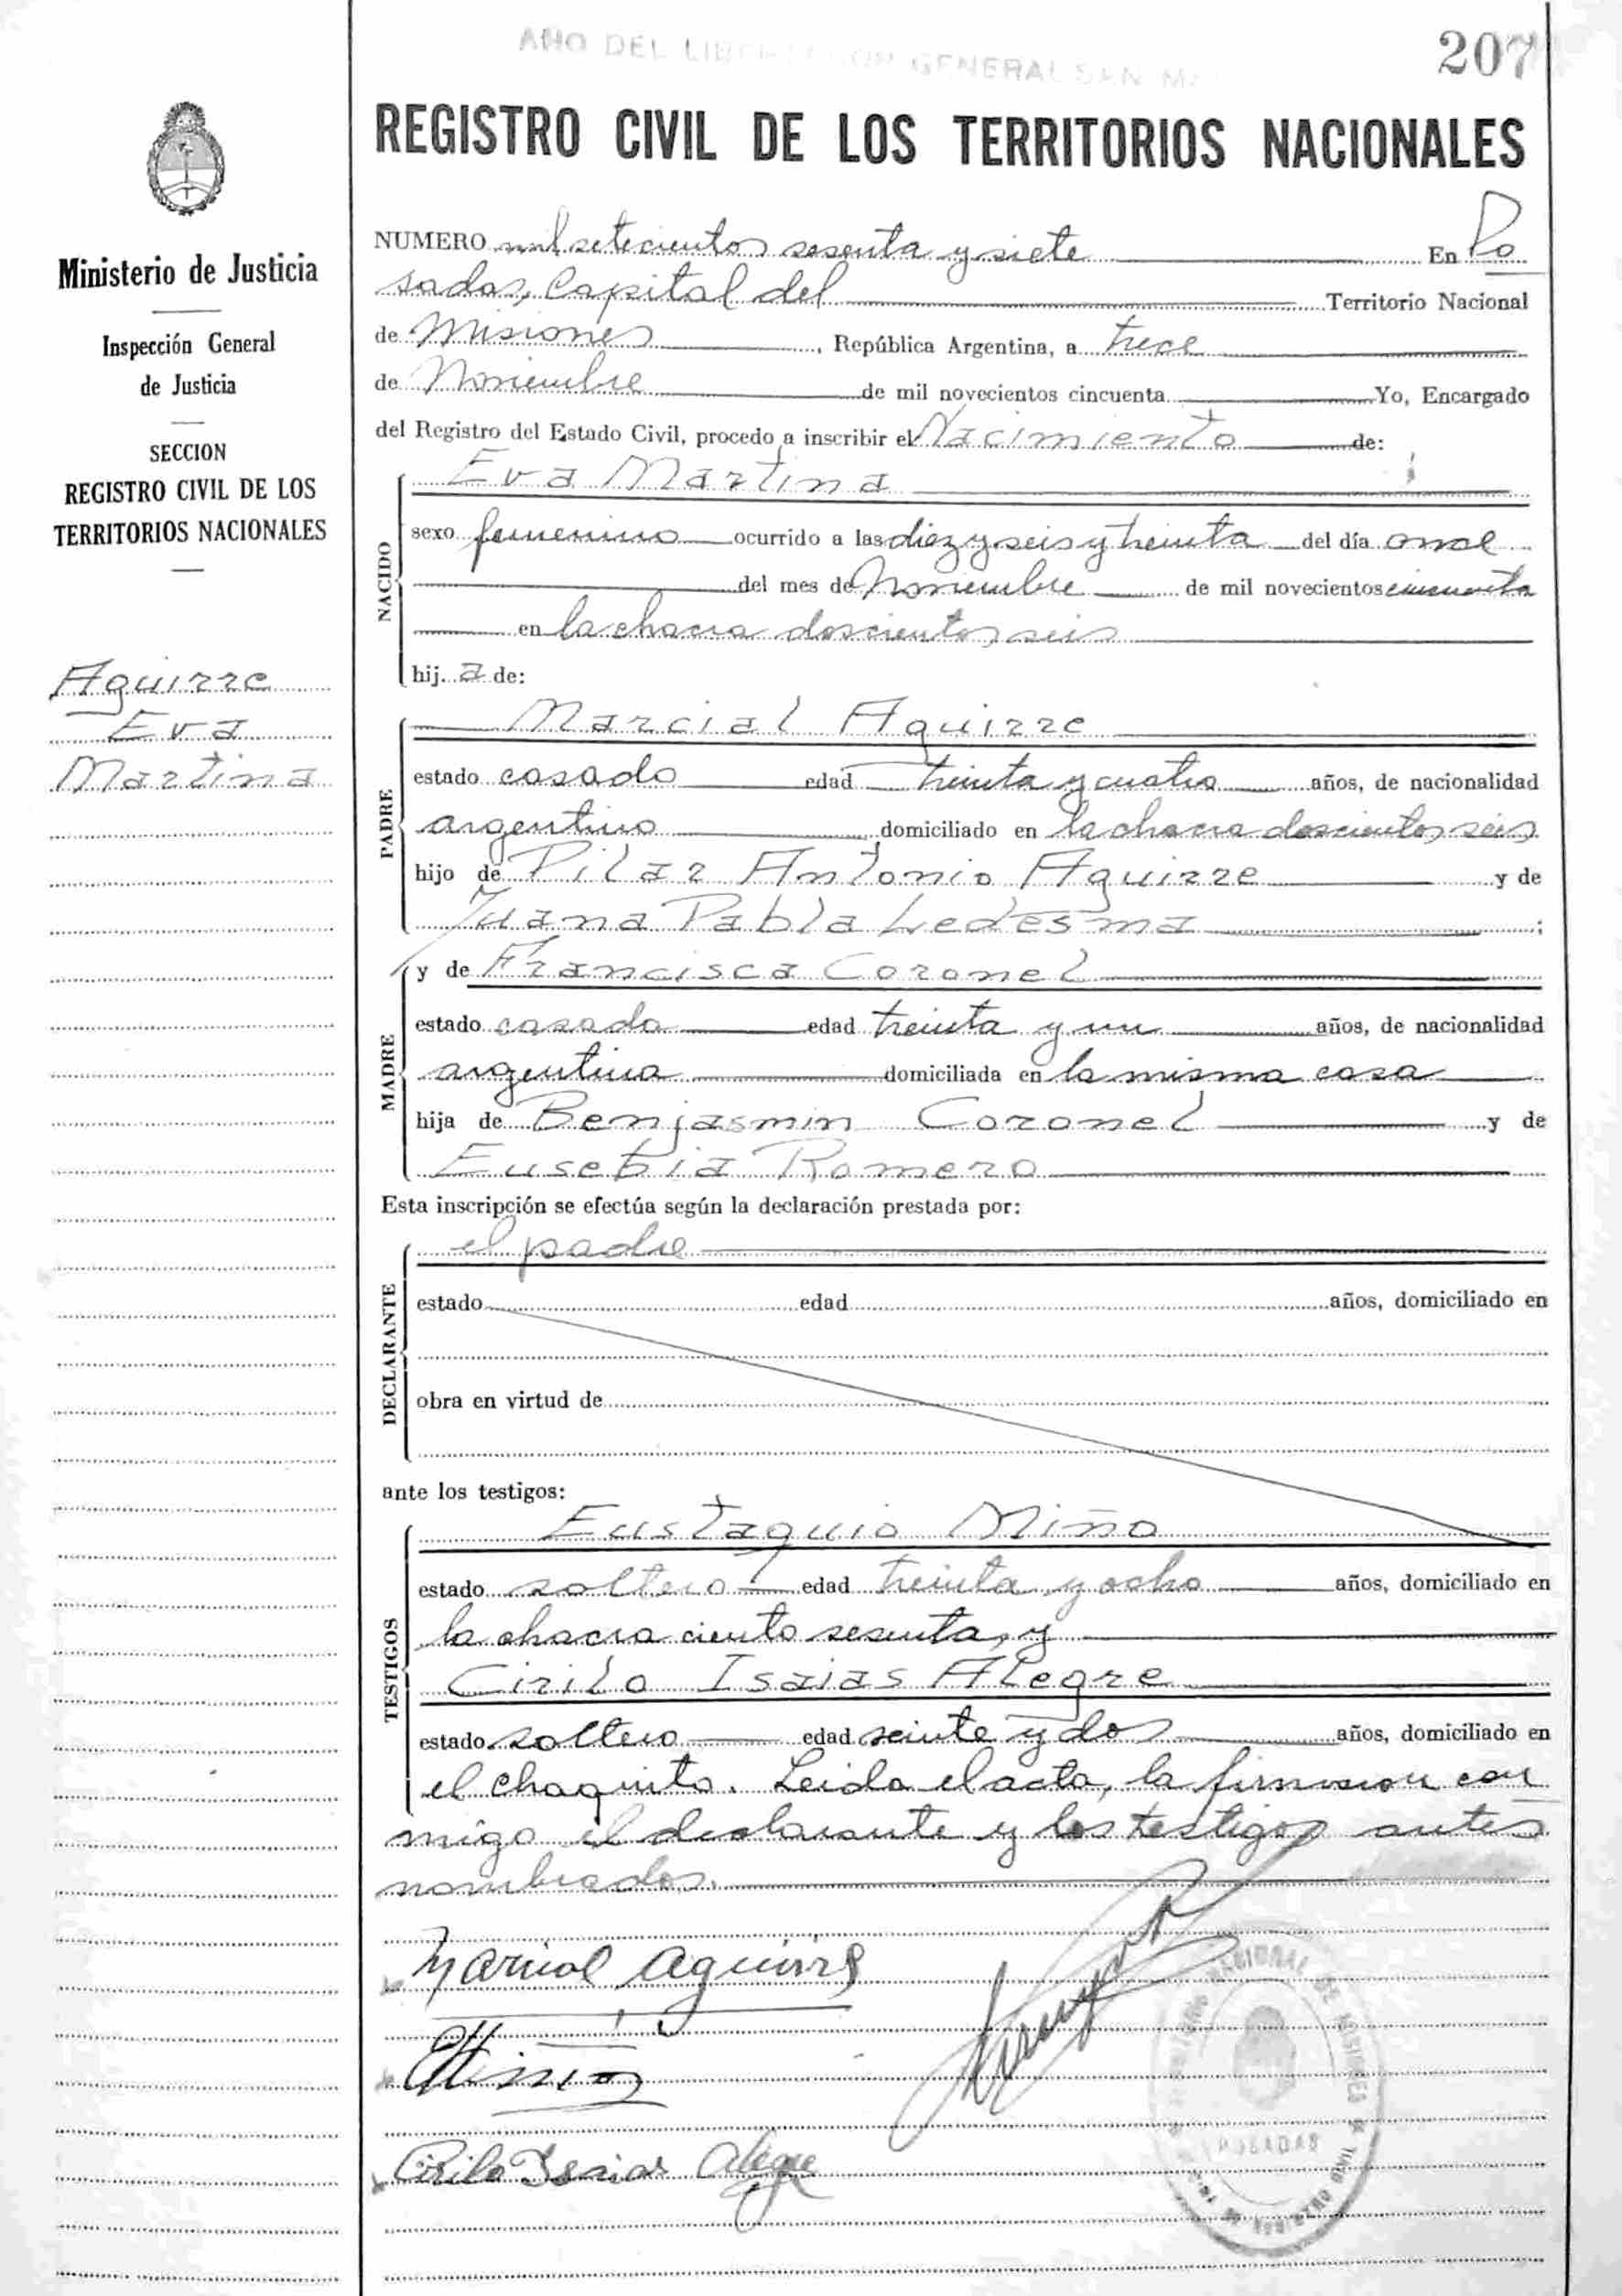 AÑO DEL LIBERTADOR GENERAL SAN MA
207
REGISTRO CIVIL DE LOS TERRITORIOS NACIONALES
Ministerio de Justicia
Inspección General
de Justicia
SECCION
REGISTRO CIVIL DE LOS
TERRITORIOS NACIONALES
Aguirre
Eva
Martina
NUMERO mil setecientos sesenta y siete En Po
sadas, Capital del Territorio Nacional
de Misiones, República Argentina, a trece
de Noviembre de mil novecientos cincuenta Yo, Encargado
del Registro del Estado Civil, procedo a inscribir el Nacimiento de:
NACIDO
Eva Martina
sexo femenino ocurrido a las diez y seis y treinta del día once
del mes de Noviembre de mil novecientos cincuenta
en la chacra doscientos seis
hij a de:
PADRE
Marcial Aguirre
estado casado edad treinta y cuatro años, de nacionalidad
argentino domiciliado en la chacra doscientos seis
hijo de Pilar Antonio Aguirre y de
Juana Pabla Ledesma ;
MADRE
y de Francisca Coronel
estado casada edad treinta y un años, de nacionalidad
argentina domiciliada en la misma casa
hija de Benjasmin Coronel y de
Eusebia Romero
Esta inscripción se efectúa según la declaración prestada por:
DECLARANTE
el padre
estado edad años, domiciliado en
obra en virtud de
ante los testigos:
TESTIGOS
Eustaquio Miño
estado soltero edad treinta y ocho años, domiciliado en
la chacra ciento sesenta, y
Cirilo Isaias Alegre
estado soltero edad veinte y dos años, domiciliado en
el chaquito. Leida el acta, la firmaron con
migo el declarante y los testigos antes
nombrados.
Marcial Aguirre
EMiño
Cirilo Isaias Alegre
POSADAS